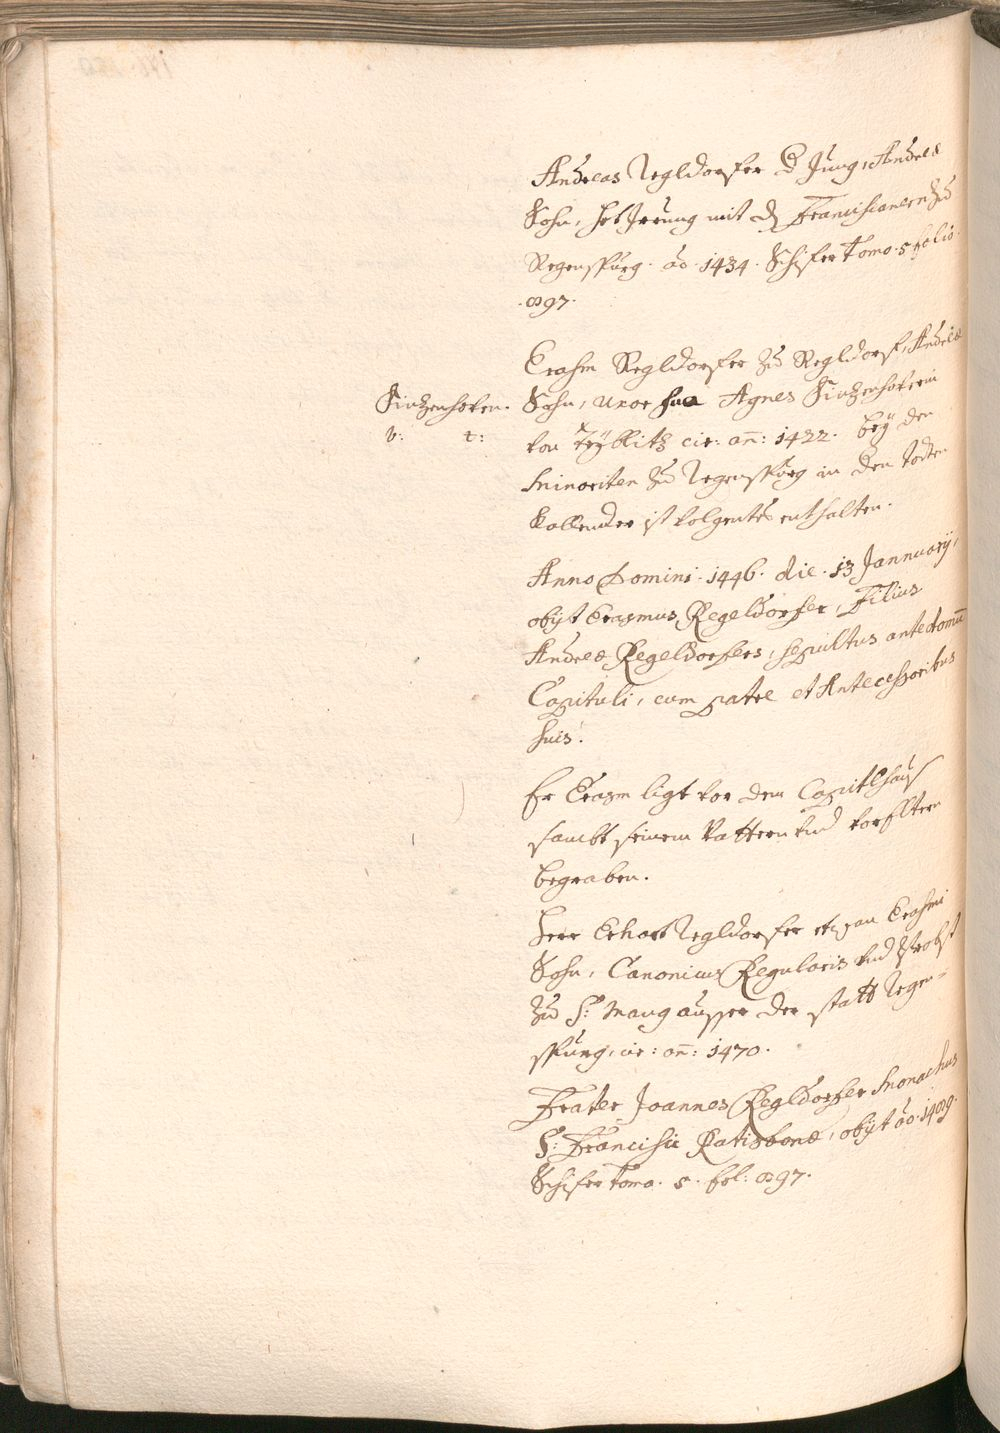 Andreas Regldorfer D Jung, Andreæ
Sohn, het Irrung mit dn Franciscanern zu
Regenspurg. ao. 1434. Schifer Tomo. 5 folio
897.
Erasm Regldorfer zu Regldorf, Andreæ
Kürzenhofer. Sohn, Uxor sua Agnes Kürzenhoferin
v: t:
von Teyblitz cir: an: 1422. bey den
Minoriten zu Regenspurg in den todten
Kallender ist volgentes enthalten.
Anno Domini. 1446. die. 13 Jannuarij,
obijt Erasmus Regeldorfer, Filius
Andreæ Regeldorfers, sepultus ante domu
Capituli, cum patre et Antecessoribus
suis.
Er Erasm ligt vor dem Capitlhaus
sambt seinem Vattern und vorEltern
begraben.
Herr Erhart Regldorfer Erasmi
Sohn, Canonicus Regularis und Probst
zu S: Mang ausser der statt Regen=
spurg, cir: an: 1470.
Frater Joannes Regldorfer Monachus
S: Francisci Ratisbonæ, obijt ao. 1489.
Schifer Tomo. 5. fol: 897.